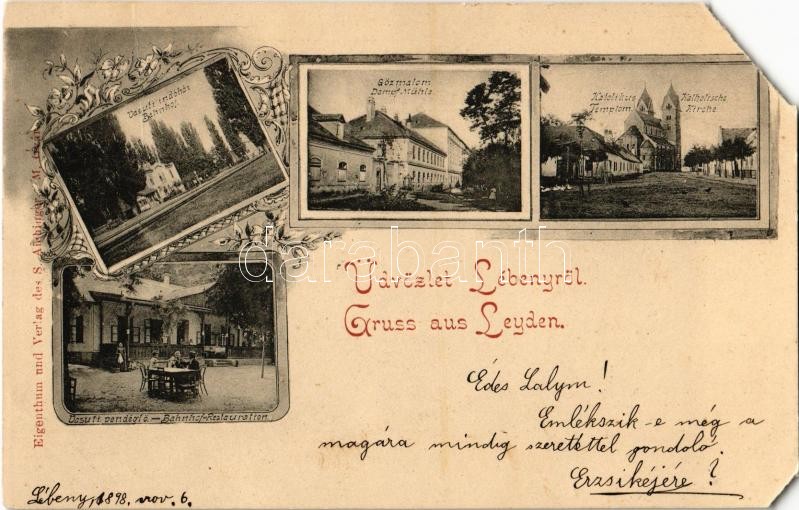 Vasuti indóház
Bahnhof.
Gőzmalom
Dampf-Mühle.
Katolikus
Templom
Katholische
Kirche
darabanth
Üdvözlet Lébenyről.
Gruss aus Leyden.
Vasuti vendéglő. — Bahnhof-Restauration.
Eigenthum und Verlag des S.
Édes Lalym!
Emlékszik-e még a
magára mindig szeretettel gondoló
Erzsikéjére?
Lébeny, 1898. nov. 6.